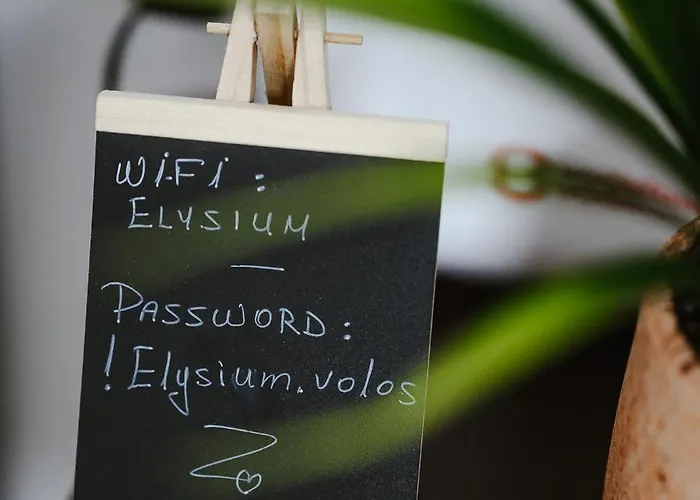 WiFi :
ELYSIUM
PASSWORD :
!Elysium.volos